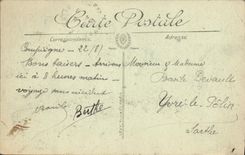 Carte Postale
Correspondance
Adresse
Compiègne - 22/8/
Bons baisers - Arrivons
ici à 2 heures matin -
voyage sans incident
Berthe
Monsieur & Madame
Yvré-le-Pôlin
Sarthe